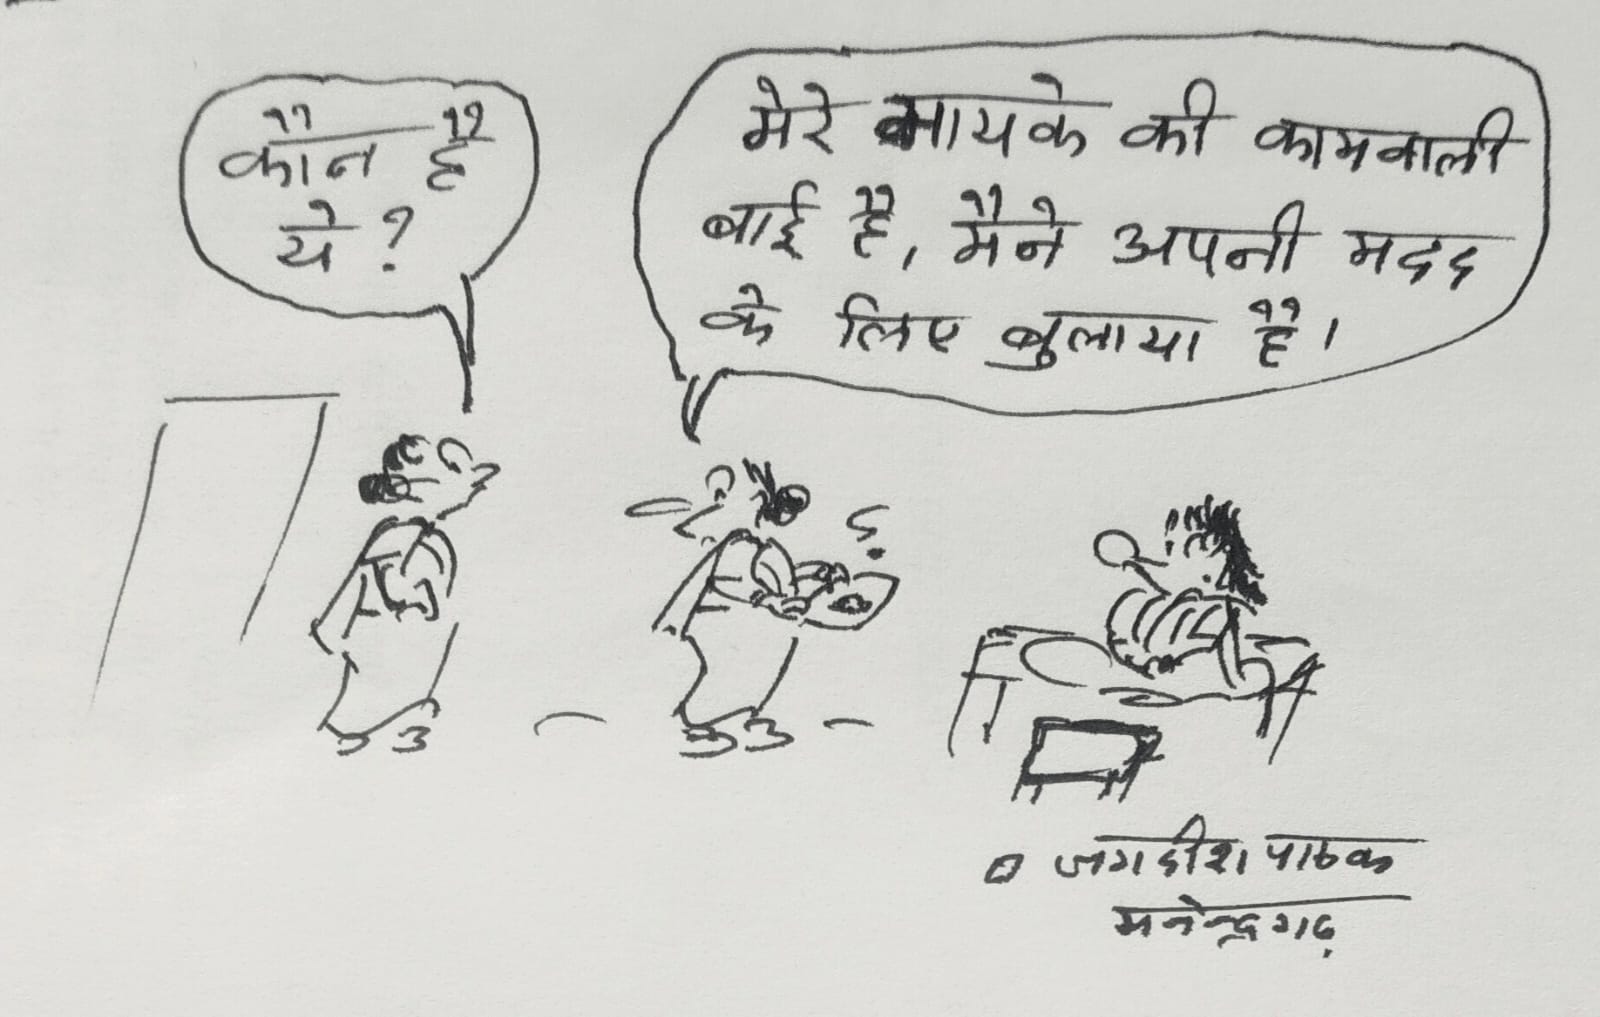 कौन है
ये?
मेरे मायके की कामवाली
बाई है, मैने अपनी मदद
के लिए बुलाया है।
जगदीश पाठक
मनेन्द्रगढ़